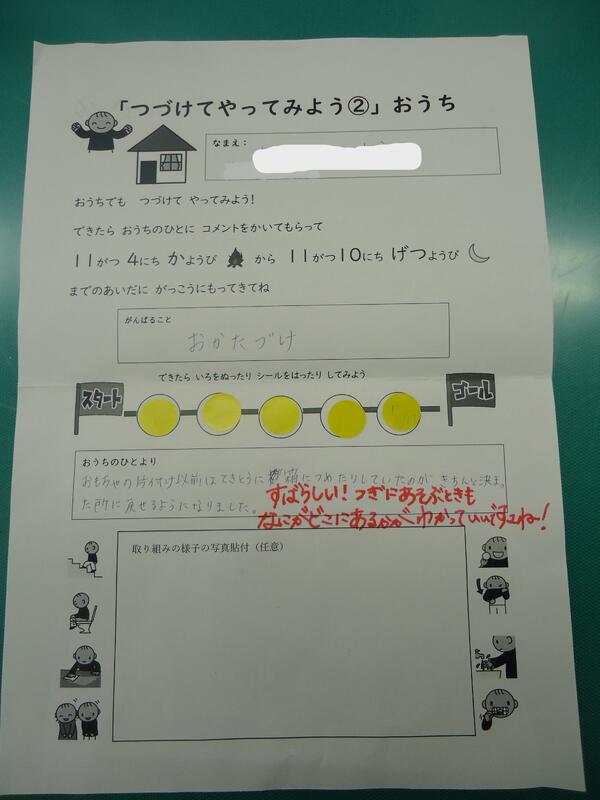 「つづけてやってみよう②」おうち
なまえ：
おうちでも　つづけて　やってみよう！
できたら　おうちのひとに　コメントをかいてもらって
11がつ　4にち　かようび　から　11がつ10にち　げつようび
までのあいだに　がっこうにもってきてね
がんばること
おかたづけ
できたら　いろをぬったり　シールをはったり　してみよう
スタート
ゴール
おうちのひとより
おもちゃの片付け以前はてきとうに箱につめたりしていたのが、きちんと決まっ
た所に戻せるようになりました。
すばらしい！つぎにあそぶときも
なにがどこにあるかがわかっていいですね！
取り組みの様子の写真貼付（任意）